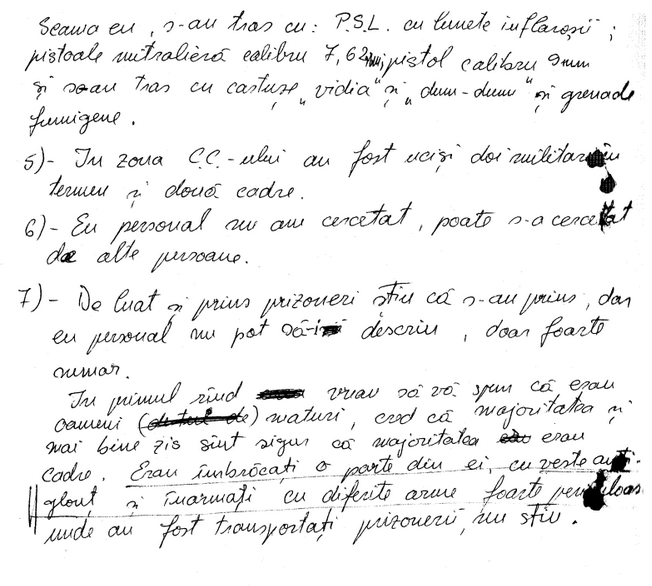 Seama eu, s-au tras cu: P.S.L. cu lunete inflaroșii ;
pistoale mitralieră calibru 7,62mm, pistol calibru 9mm
și s-au tras cu cartușe „vidia" și „dum-dum" și grenade
fumigene.
5)- In zona C.C.-ului au fost uciși doi militari în
termen și două cadre.
6)- Eu personal nu am cercetat, poate s-a cercetat
de alte persoane.
7)- De luat și prins prizoneri știu că s-au prins, dar
eu personal nu pot să-i descriu, doar foarte
sumar.
In primul rînd vreau să vă spun că erau
oameni (de tul de) maturi, cred că majoritatea și
mai bine zis sînt sigur că majoritatea erau
cadre. Erau îmbrăcați o parte din ei, cu veste anti-
glonț și înarmați cu diferite arme foarte periculoas
unde au fost transportați prizonerii, nu știu.